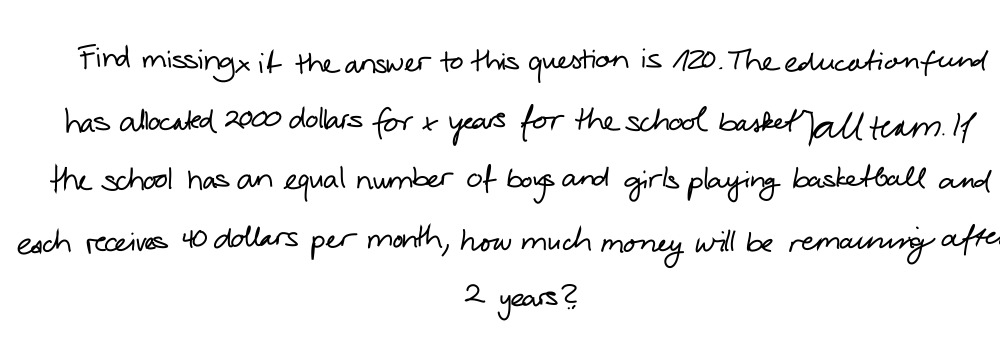 Find missing x if the answer to this question is 120. The education fund
has allocated 2000 dollars for x years for the school basketball team. If
the school has an equal number of boys and girls playing basketball and
each receives 40 dollars per month, how much money will be remaining after
2 years?